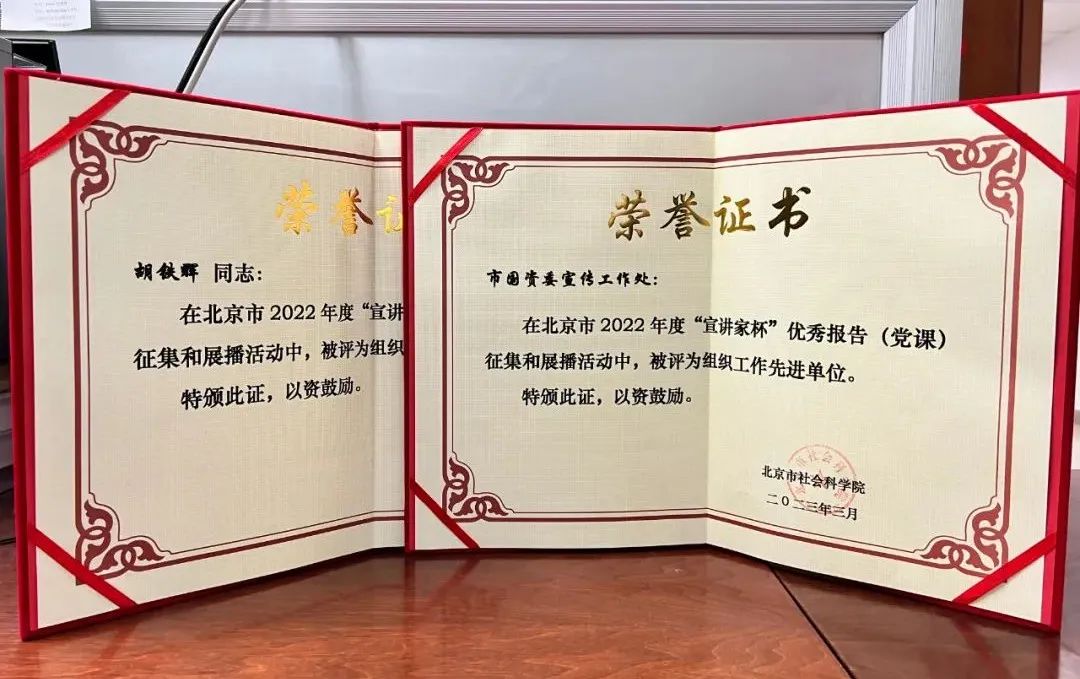 荣誉证
胡铁辉 同志：
在北京市 2022 年度“宣讲
征集和展播活动中，被评为组织
特颁此证，以资鼓励。
荣誉证书
市国资委宣传工作处：
在北京市 2022 年度“宣讲家杯”优秀报告（党课）
征集和展播活动中，被评为组织工作先进单位。
特颁此证，以资鼓励。
北京市社会科学院
二〇二三年三月